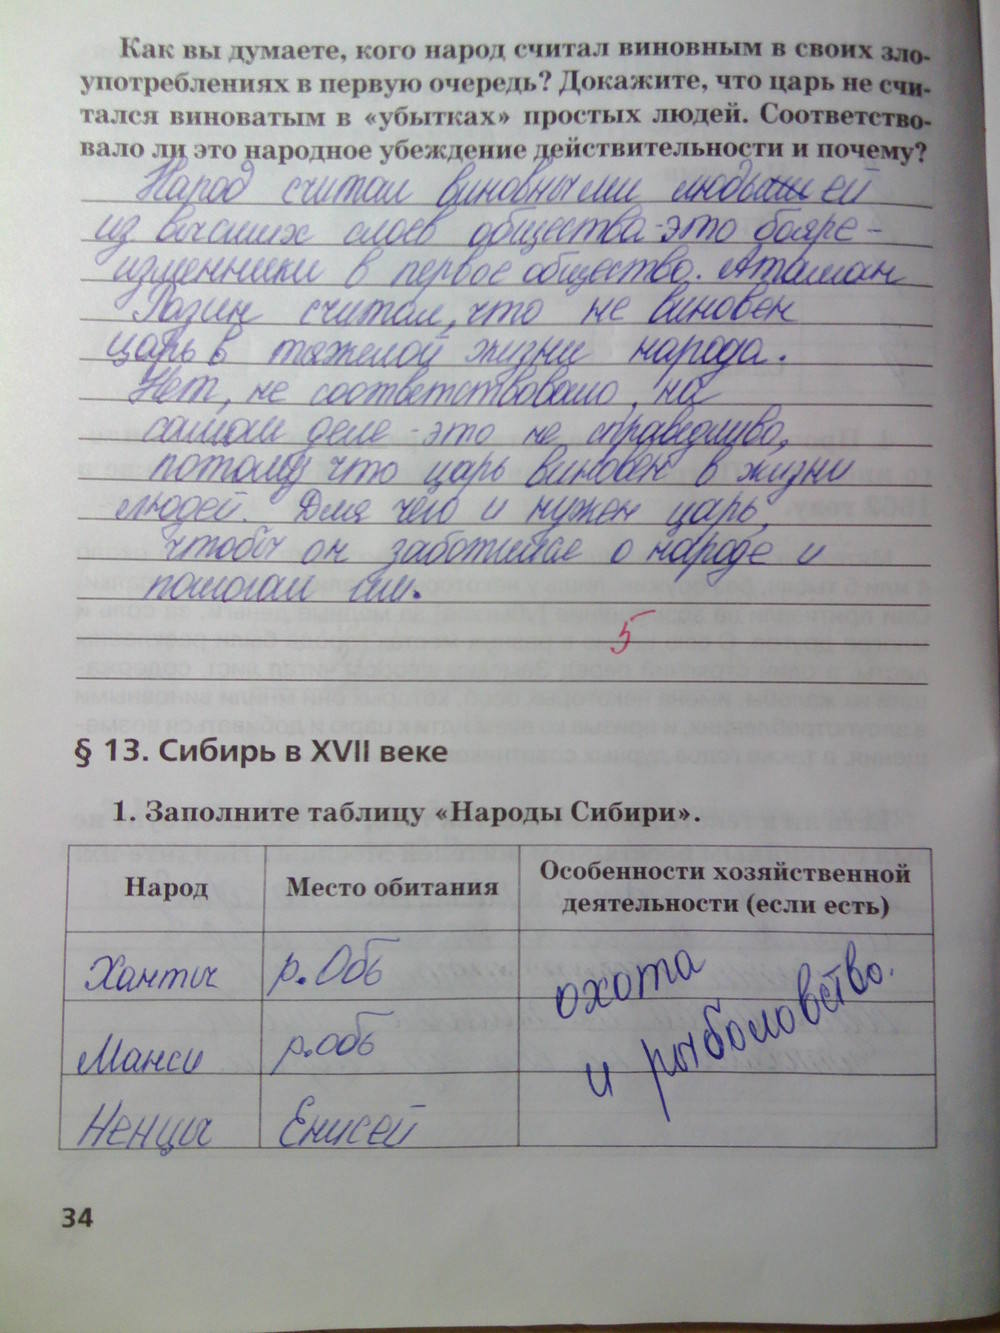 Как вы думаете, кого народ считал виновным в своих зло-
употреблениях в первую очередь? Докажите, что царь не счи-
тался виноватым в «убытках» простых людей. Соответство-
вало ли это народное убеждение действительности и почему?
Народ считал виновными людей
из высших слоев общества-это бояре-
изменники в первое общество. Атаман
Разин считал, что не виновен
царь в тяжелой жизни народа.
Нет, не соответствовало, на
самом деле-это не справедливо,
потому что царь виновен в жизни
людей. Для чего и нужен царь,
чтобы он заботился о народе и
помогал им.
5
§ 13. Сибирь в XVII веке
1. Заполните таблицу «Народы Сибири».
Народ Место обитания Особенности хозяйственной
деятельности (если есть)
Ханты р. Обь охота
Манси р. обь и рыболовство.
Ненцы Енисей
34